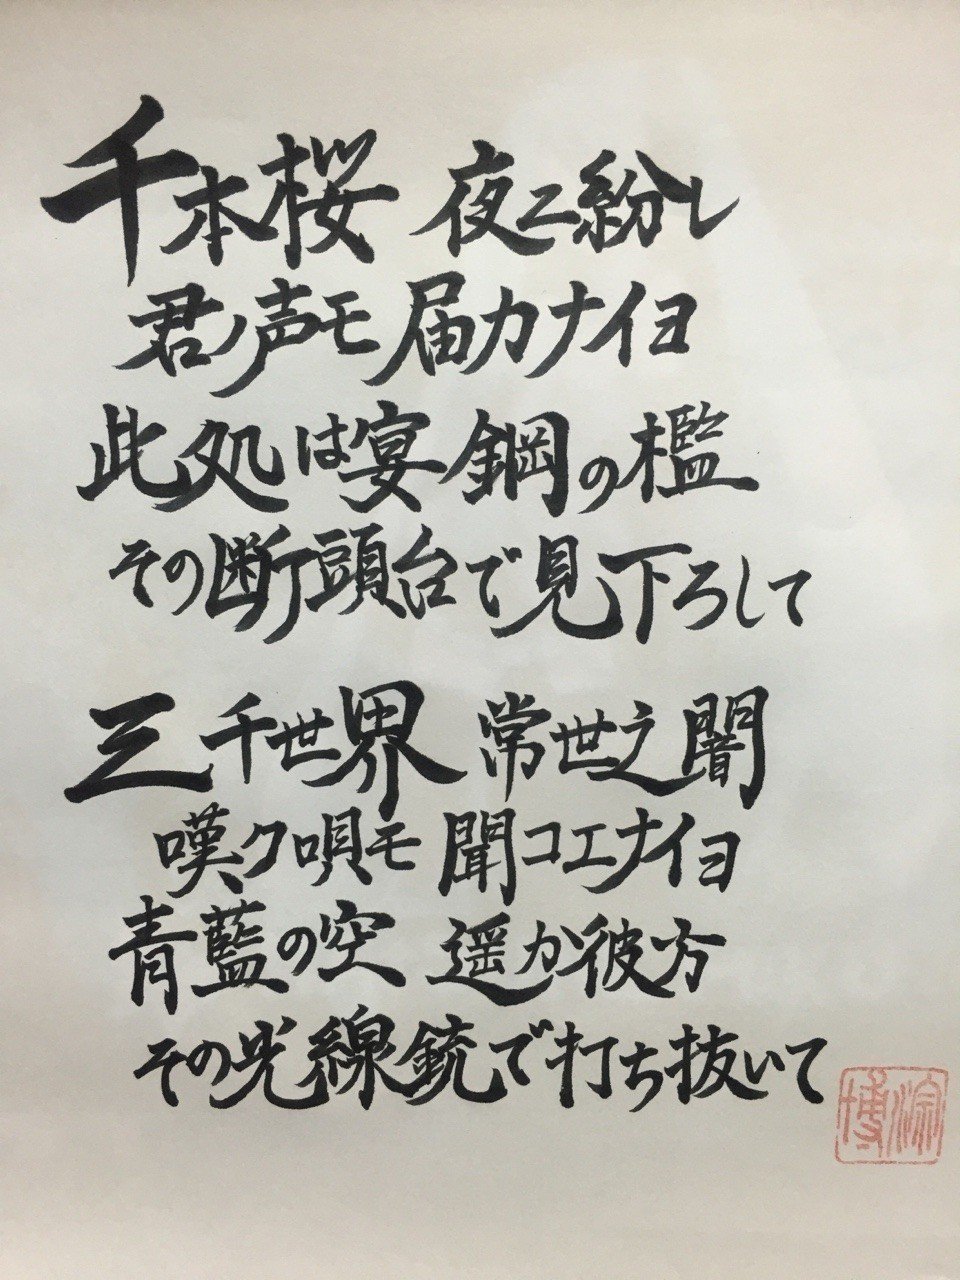 千本桜 夜ニ紛レ
君ノ声モ届カナイヨ
此処は宴 鋼の檻
その断頭台で見下ろして
三千世界 常世之闇
嘆ク唄モ聞コエナイヨ
青藍の空 遥か彼方
その光線銃で打ち抜いて